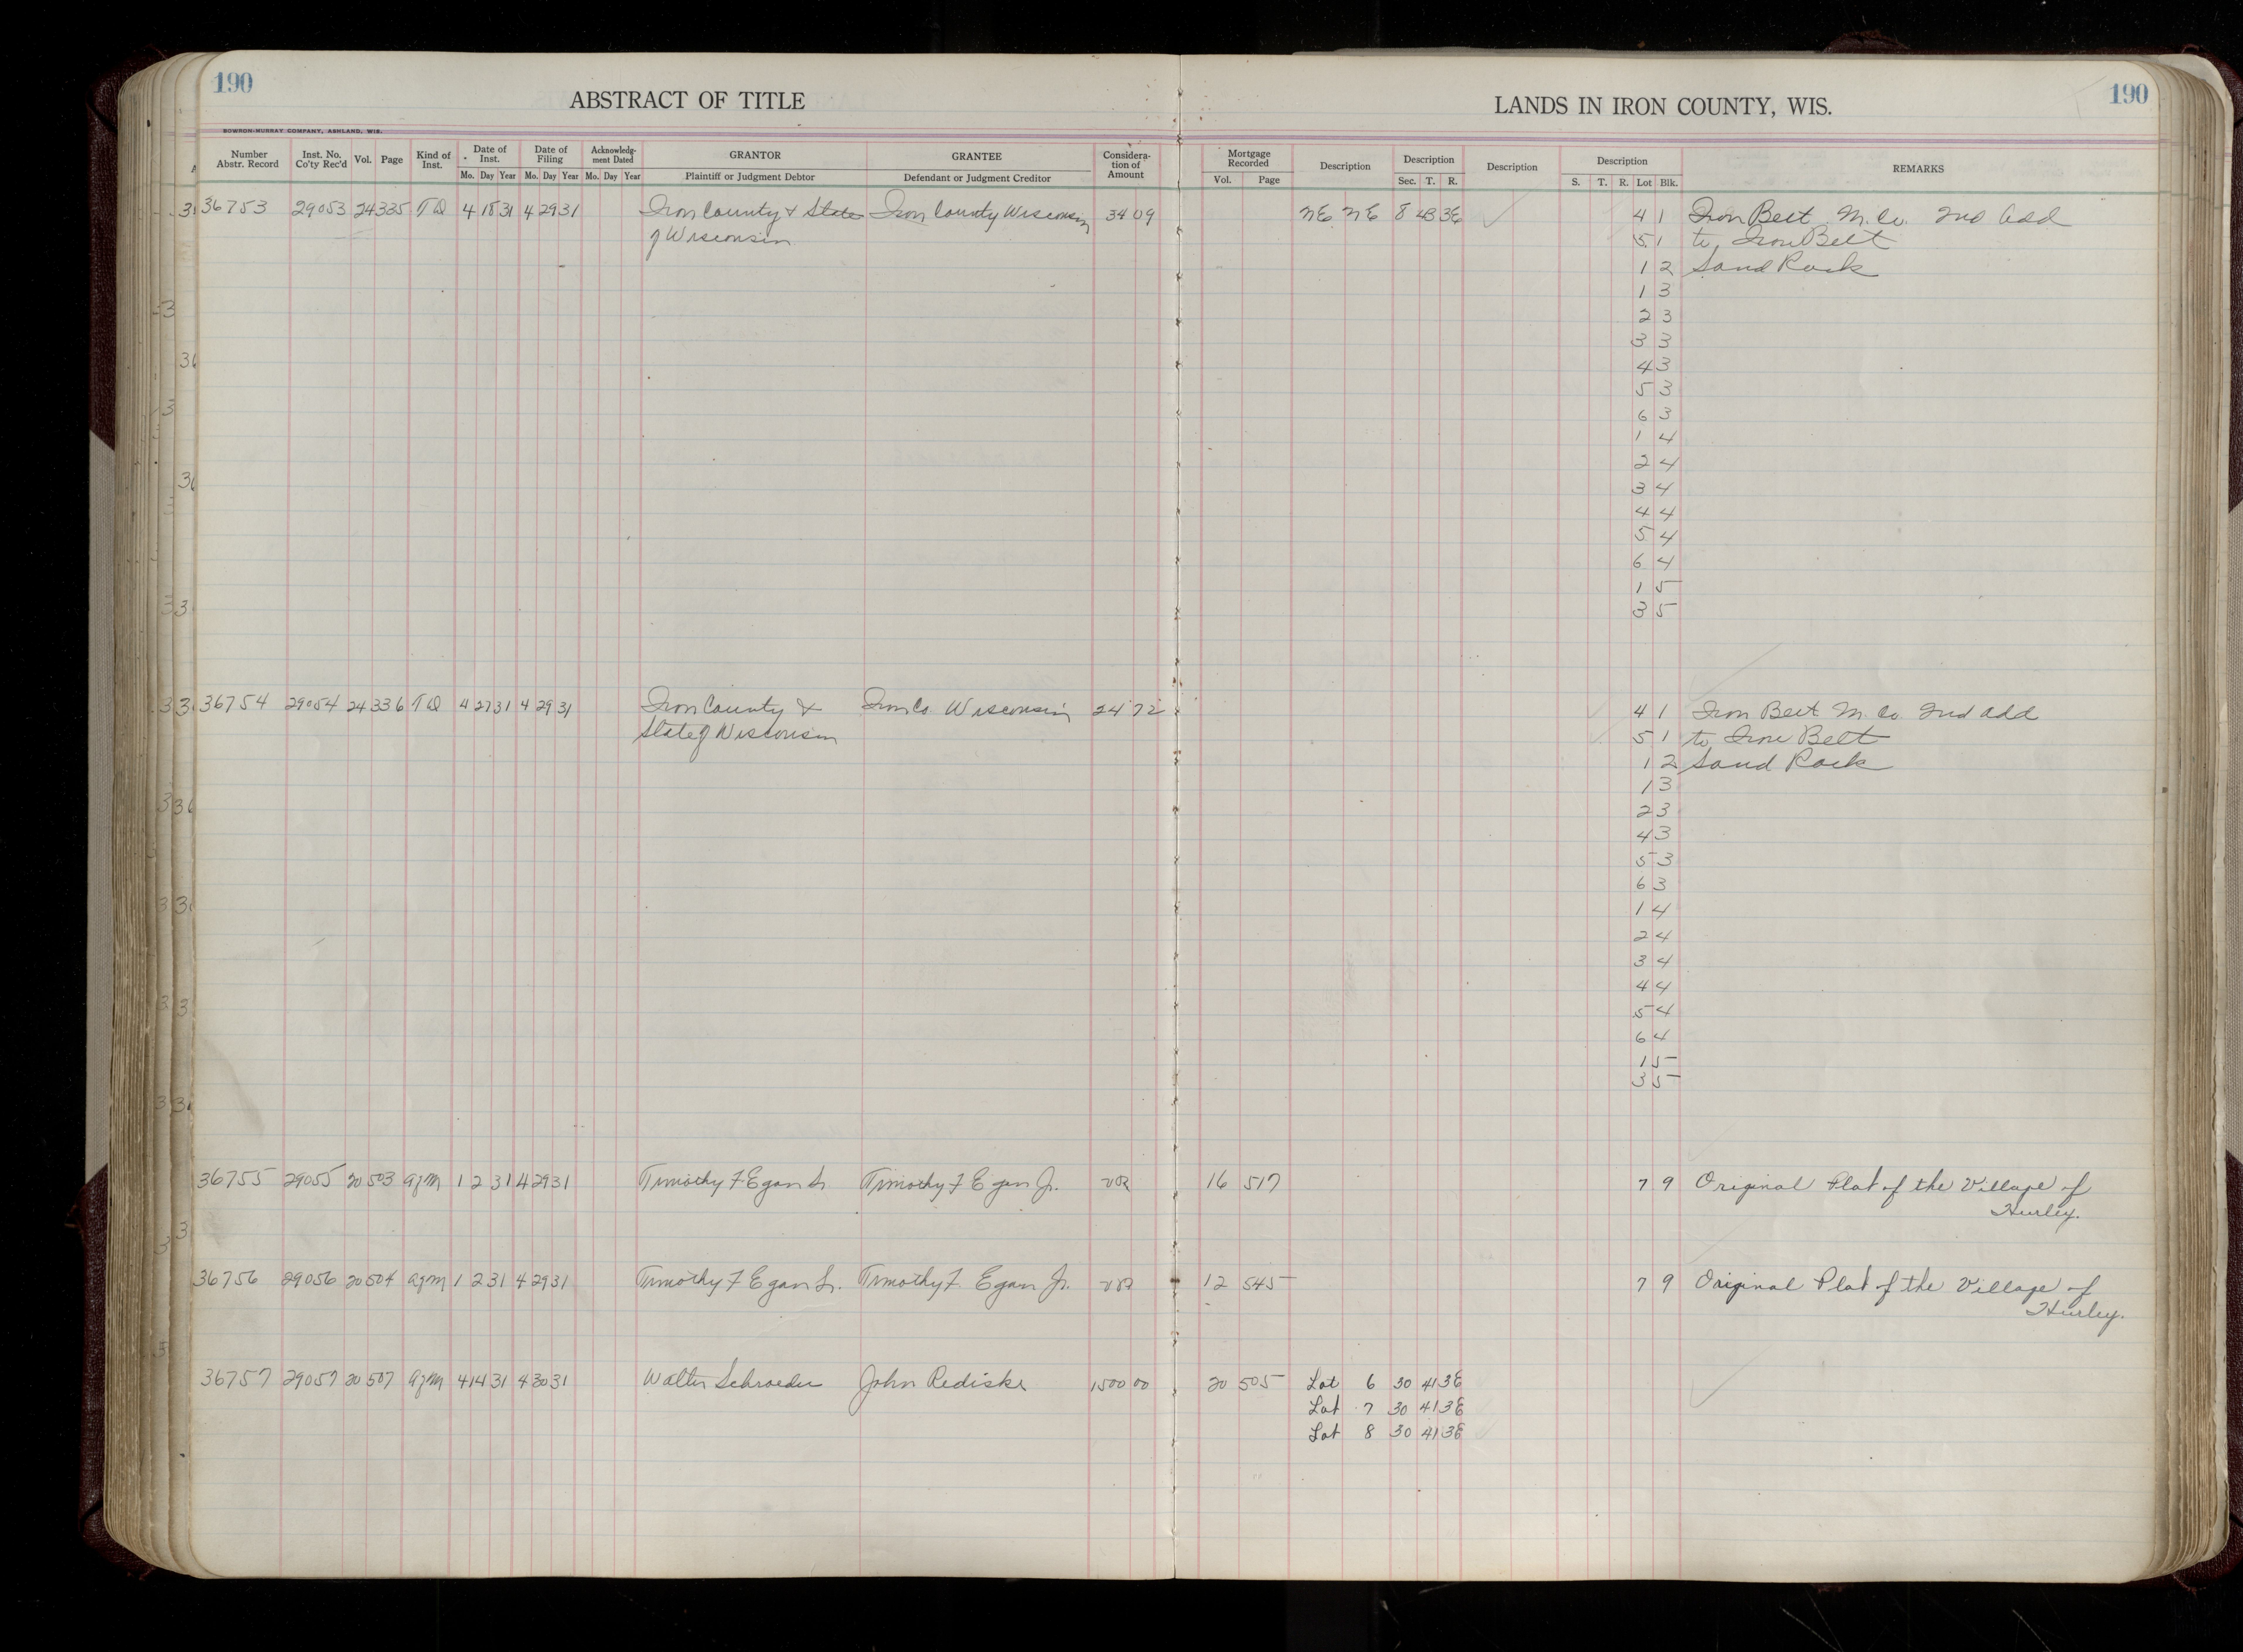 190
190
ABSTRACT OF TITLE
LANDS IN IRON COUNTY, WIS.
BOWRON-MURRAY COMPANY, ASHLAND, WIS.
Number Abstr. Record Inst. No. Co'ty Rec'd Vol. Page Kind of Inst. Date of Inst. Mo. Day Year Date of Filing Mo. Day Year Acknowledg-ment Dated Mo. Day Year GRANTOR Plaintiff or Judgment Debtor GRANTEE Defendant or Judgment Creditor Considera-tion of Amount Mortgage Recorded Vol. Page Description Description Sec. T. R. Description Description S. T. R. Lot Blk. REMARKS
36753 29053 24 335 TD 4 18 31 4 29 31 Iron County & State Iron County Wisconsin 34 09 NE NE 8 43 3E 4 1 Iron Belt M. Co. 2nd Add
of Wisconsin 5 1 to Iron Belt
1 2 Sand Rock
1 3
2 3
3 3
4 3
5 3
6 3
1 4
2 4
3 4
4 4
5 4
6 4
1 5
3 5
36754 29054 24 336 TD 4 27 31 4 29 31 Iron County & Iron Co. Wisconsin 24 72 4 1 Iron Belt M. Co. 2nd Add
State of Wisconsin 5 1 to Iron Belt
1 2 Sand Rock
1 3
2 3
4 3
5 3
6 3
1 4
2 4
3 4
4 4
5 4
6 4
1 5
3 5
36755 29055 20 503 agm 1 2 31 4 29 31 Timothy F Egan Sr Timothy F Egan Jr. VR 16 517 7 9 Original Plat of the Village of
Hurley.
36756 29056 20 504 agm 1 2 31 4 29 31 Timothy F Egan Sr. Timothy F. Egan Jr. VR 12 545 7 9 Original Plat of the Village of
Hurley.
36757 29057 20 507 agm 4 14 31 4 30 31 Walter Schroeder John Rediske 1500 00 20 505 Lot 6 30 41 3E
Lot 7 30 41 3E
Lot 8 30 41 3E